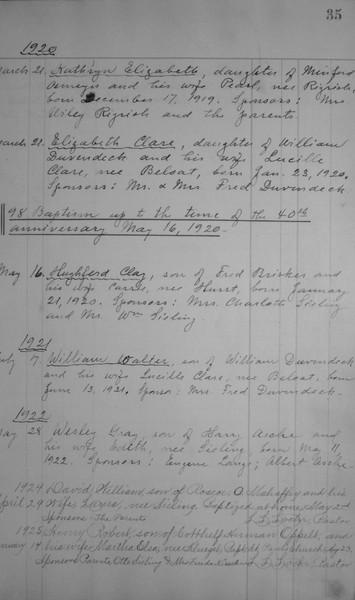 35
1920
March 21. Kathryn Elizabeth, daughter of Minford
and his wife Pearl, nee Rigrish,
born December 17, 1919. Sponsors: Mrs
Wiley Rigrish and the parents.
March 21. Elizabeth Clare, daughter of William
Duvendeck and his wife Lucille
Clare, nee Beloat, born Jan. 23, 1920.
Sponsors: Mr. & Mrs Fred Duvendeck
98 Baptism up to the time of the 40th
anniversary May 16, 1920.
May 16. Hughferd Clay, son of Fred Brisker and
his wife Carrie, nee Hurst, born January
21, 1920. Sponsors: Mrs. Charlotte Sisling
and Mr. Wm Sisling.
1921
July 7. William Walter, son of William Duvendeck
and his wife Lucille Clare, nee Beloat, born
June 13, 1921. Sponsor: Mrs. Fred Duvendeck.
1922
May 28 Wesley Gray, son of Harry Asche and
his wife Edith, nee Sisling born May 11
1922. Sponsors: Eugene Lange; Albert Asche.
1924 David William, son of Roscoe O. Mahaffey and his
April 29 wife Laree, nee Sisling. Baptized at home May 2nd
Sponsors The Parents Pastor
1925 Henry Robert, son of Gotthelf Herman Oppelt, and
January 14 his wife Martha Elsa, nee Bapt. St Pauls church Aug 23,
Sponsors Parents, Otto Sisling & Mrs Pastor